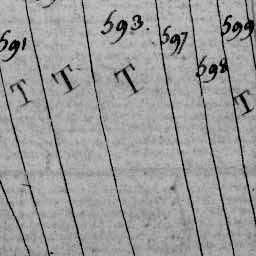 591
593.
597
598
599
T
T
T
T